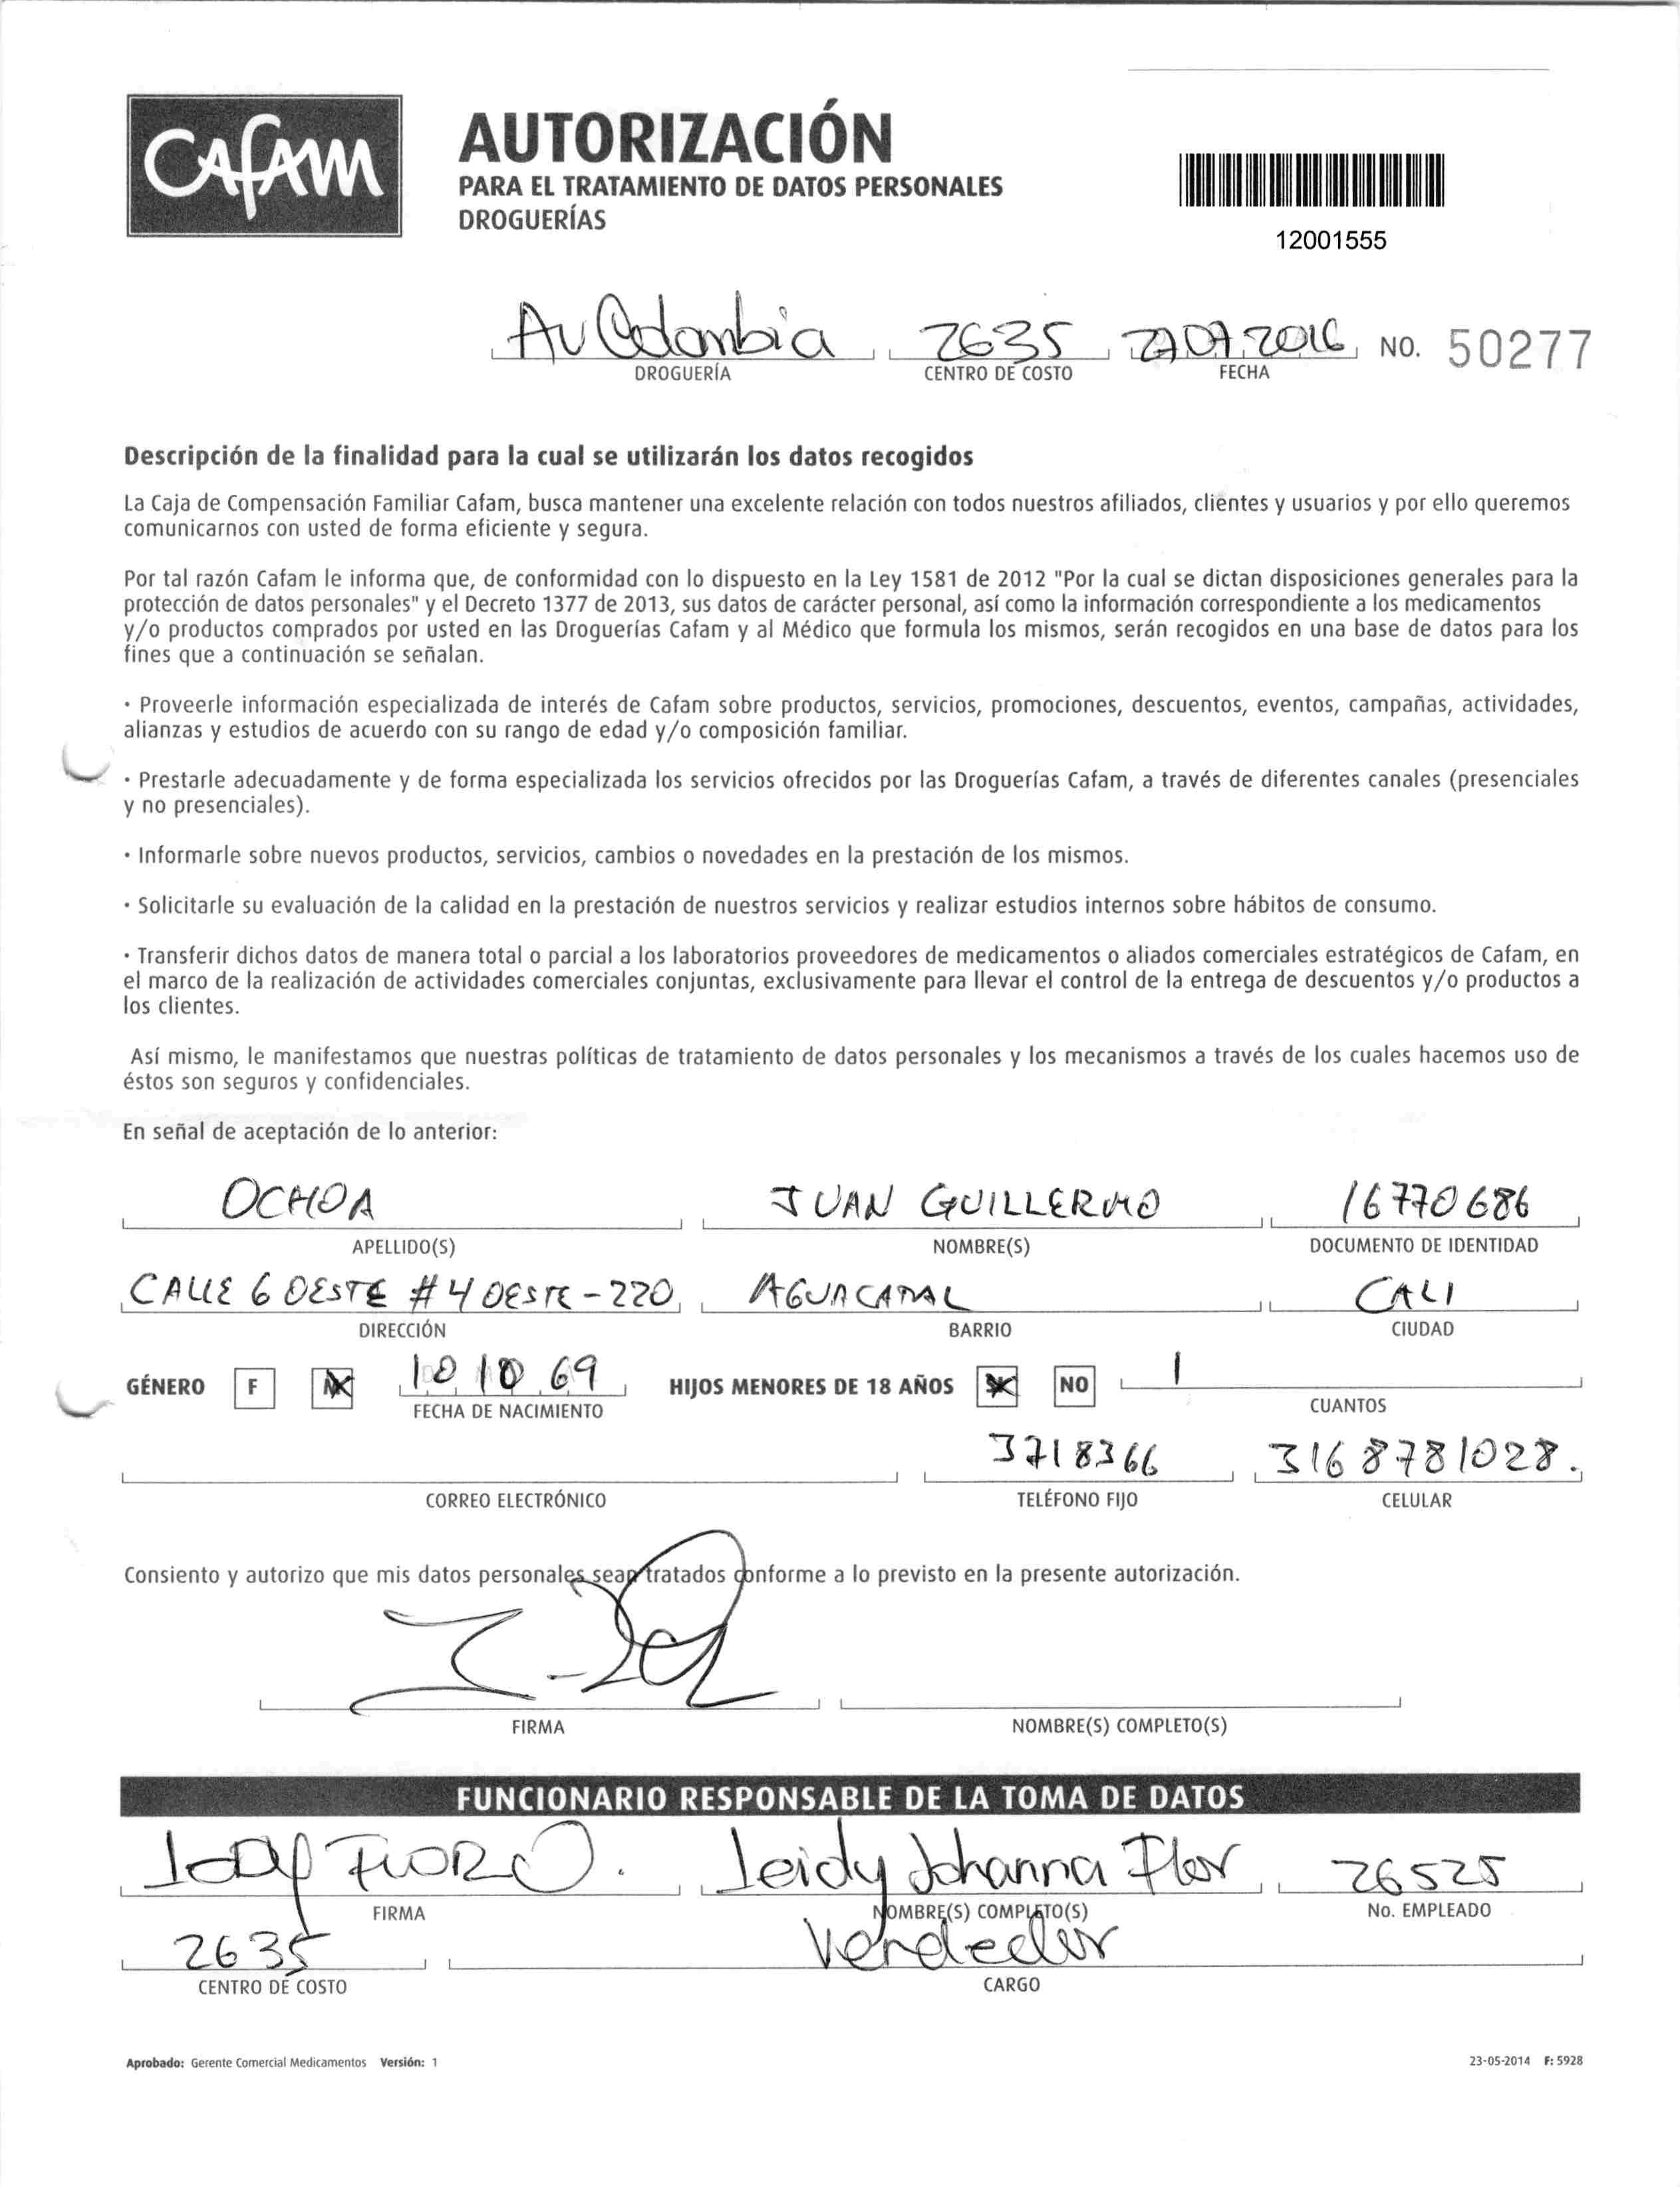 CAFAM
AUTORIZACIÓN
PARA EL TRATAMIENTO DE DATOS PERSONALES
DROGUERÍAS
12001555
Av Colombia 2635 27 07 2016 NO. 50277
DROGUERÍA CENTRO DE COSTO FECHA
Descripción de la finalidad para la cual se utilizarán los datos recogidos
La Caja de Compensación Familiar Cafam, busca mantener una excelente relación con todos nuestros afiliados, clientes y usuarios y por ello queremos
comunicarnos con usted de forma eficiente y segura.
Por tal razón Cafam le informa que, de conformidad con lo dispuesto en la Ley 1581 de 2012 "Por la cual se dictan disposiciones generales para la
protección de datos personales" y el Decreto 1377 de 2013, sus datos de carácter personal, así como la información correspondiente a los medicamentos
y/o productos comprados por usted en las Droguerías Cafam y al Médico que formula los mismos, serán recogidos en una base de datos para los
fines que a continuación se señalan.
· Proveerle información especializada de interés de Cafam sobre productos, servicios, promociones, descuentos, eventos, campañas, actividades,
alianzas y estudios de acuerdo con su rango de edad y/o composición familiar.
· Prestarle adecuadamente y de forma especializada los servicios ofrecidos por las Droguerías Cafam, a través de diferentes canales (presenciales
y no presenciales).
· Informarle sobre nuevos productos, servicios, cambios o novedades en la prestación de los mismos.
· Solicitarle su evaluación de la calidad en la prestación de nuestros servicios y realizar estudios internos sobre hábitos de consumo.
· Transferir dichos datos de manera total o parcial a los laboratorios proveedores de medicamentos o aliados comerciales estratégicos de Cafam, en
el marco de la realización de actividades comerciales conjuntas, exclusivamente para llevar el control de la entrega de descuentos y/o productos a
los clientes.
Así mismo, le manifestamos que nuestras políticas de tratamiento de datos personales y los mecanismos a través de los cuales hacemos uso de
éstos son seguros y confidenciales.
En señal de aceptación de lo anterior:
OCHOA JUAN GUILLERMO 16770686
APELLIDO(S) NOMBRE(S) DOCUMENTO DE IDENTIDAD
CALLE 6 OESTE # 4 OESTE - 220 AGUACATAL CALI
DIRECCIÓN BARRIO CIUDAD
GÉNERO F M 10 10 69 HIJOS MENORES DE 18 AÑOS SI NO 1
FECHA DE NACIMIENTO CUANTOS
3718366 3168781028.
CORREO ELECTRÓNICO TELÉFONO FIJO CELULAR
Consiento y autorizo que mis datos personales sean tratados conforme a lo previsto en la presente autorización.
FIRMA NOMBRE(S) COMPLETO(S)
FUNCIONARIO RESPONSABLE DE LA TOMA DE DATOS
Leidy Johanna Flor 26525
FIRMA NOMBRE(S) COMPLETO(S) No. EMPLEADO
2635 Vendedor
CENTRO DE COSTO CARGO
Aprobado: Gerente Comercial Medicamentos Versión: 1 23-05-2014 F: 5928